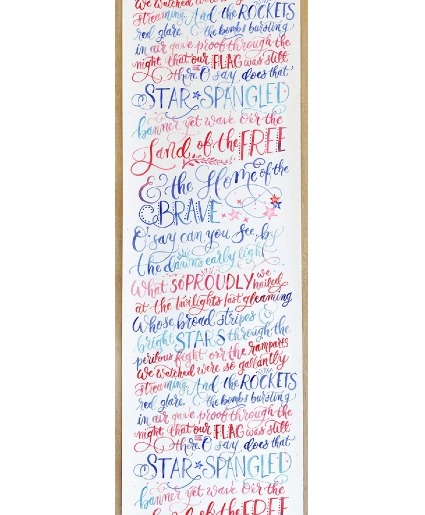 We watched were so gallantly
streaming. And the ROCKETS
red glare. the bombs bursting
in air gave proof through the
night that our FLAG was still
there O say does that
STAR SPANGLED
banner yet wave o'er the
Land of the FREE
& the Home of the
BRAVE
O' say can you See, by
the dawn's early light
What so PROUDLY we hailed
at the twilights last gleaming
Whose broad stripes &
bright STARS through the
perilous fight o'er the ramparts
We watched were so gallantly
streaming. And the ROCKETS
red glare. the bombs bursting
in air gave proof through the
night that our FLAG was still
there O say does that
STAR SPANGLED
banner yet wave o'er the
Land of the FREE